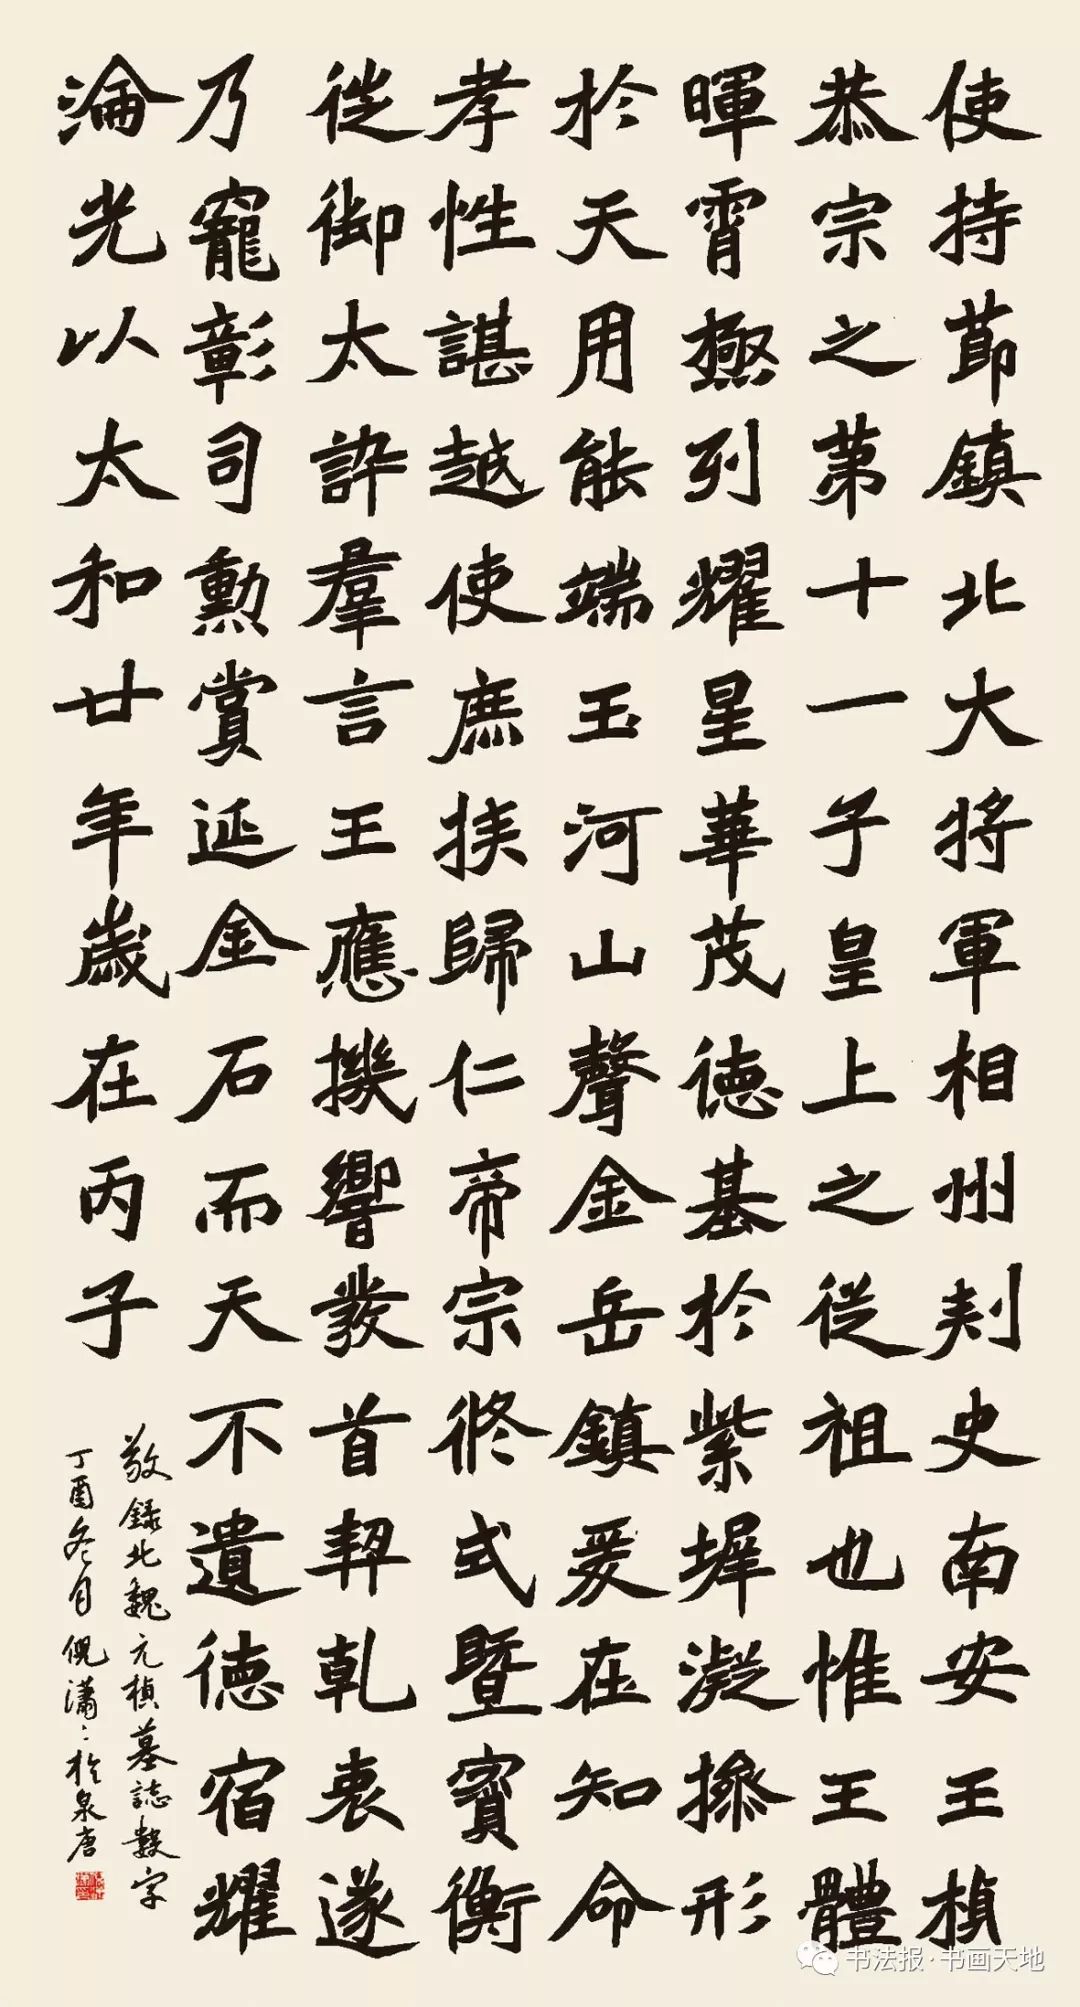 使持莭鎮北大将軍相州刾史南安王楨
恭宗之苐十一子皇上之從祖也惟王體
暉霄極列耀星華茂德基於紫墀凝操形
於天用能端玉河山聲金岳鎮爰在知命
孝性諶越使庶族歸仁帝宗攸式暨寳衡
從御太訐羣言王應機響發首契乾衷遂
乃寵彰司勳賞延金石而天不遺德宿耀
淪光以太和廿年歲在丙子
敬録北魏元楨墓誌數字
丁酉冬月倪瀟〻於泉唐
书法报·书画天地